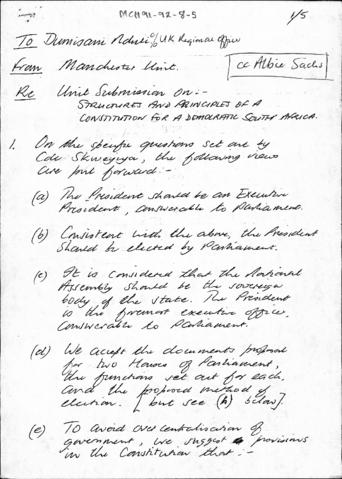 MCH91-92-8-5
1/5
To Dumisani Nduli c/o UK Regional Office
From Manchester Unit.
cc Albie Sachs
Re Unit Submission on :-
STRUCTURES AND PRINCIPLES OF A
CONSTITUTION FOR A DEMOCRATIC SOUTH AFRICA.
1. On the specific questions set out by
Cde Skweyiya, the following views
are put forward :-
(a) The President should be an Executive
President, answerable to Parliament.
(b) Consistent with the above, the President
should be elected by Parliament.
(c) It is considered that the National
Assembly should be the sovereign
body of the state. The President
is the foremost executive officer,
answerable to Parliament.
(d) We accept the documents proposal
for two Houses of Parliament,
the functions set out for each,
and the proposed method of
election. [but see (h) below].
(e) To avoid over centralisation of
government, we suggest provisions
in the Constitution that :-